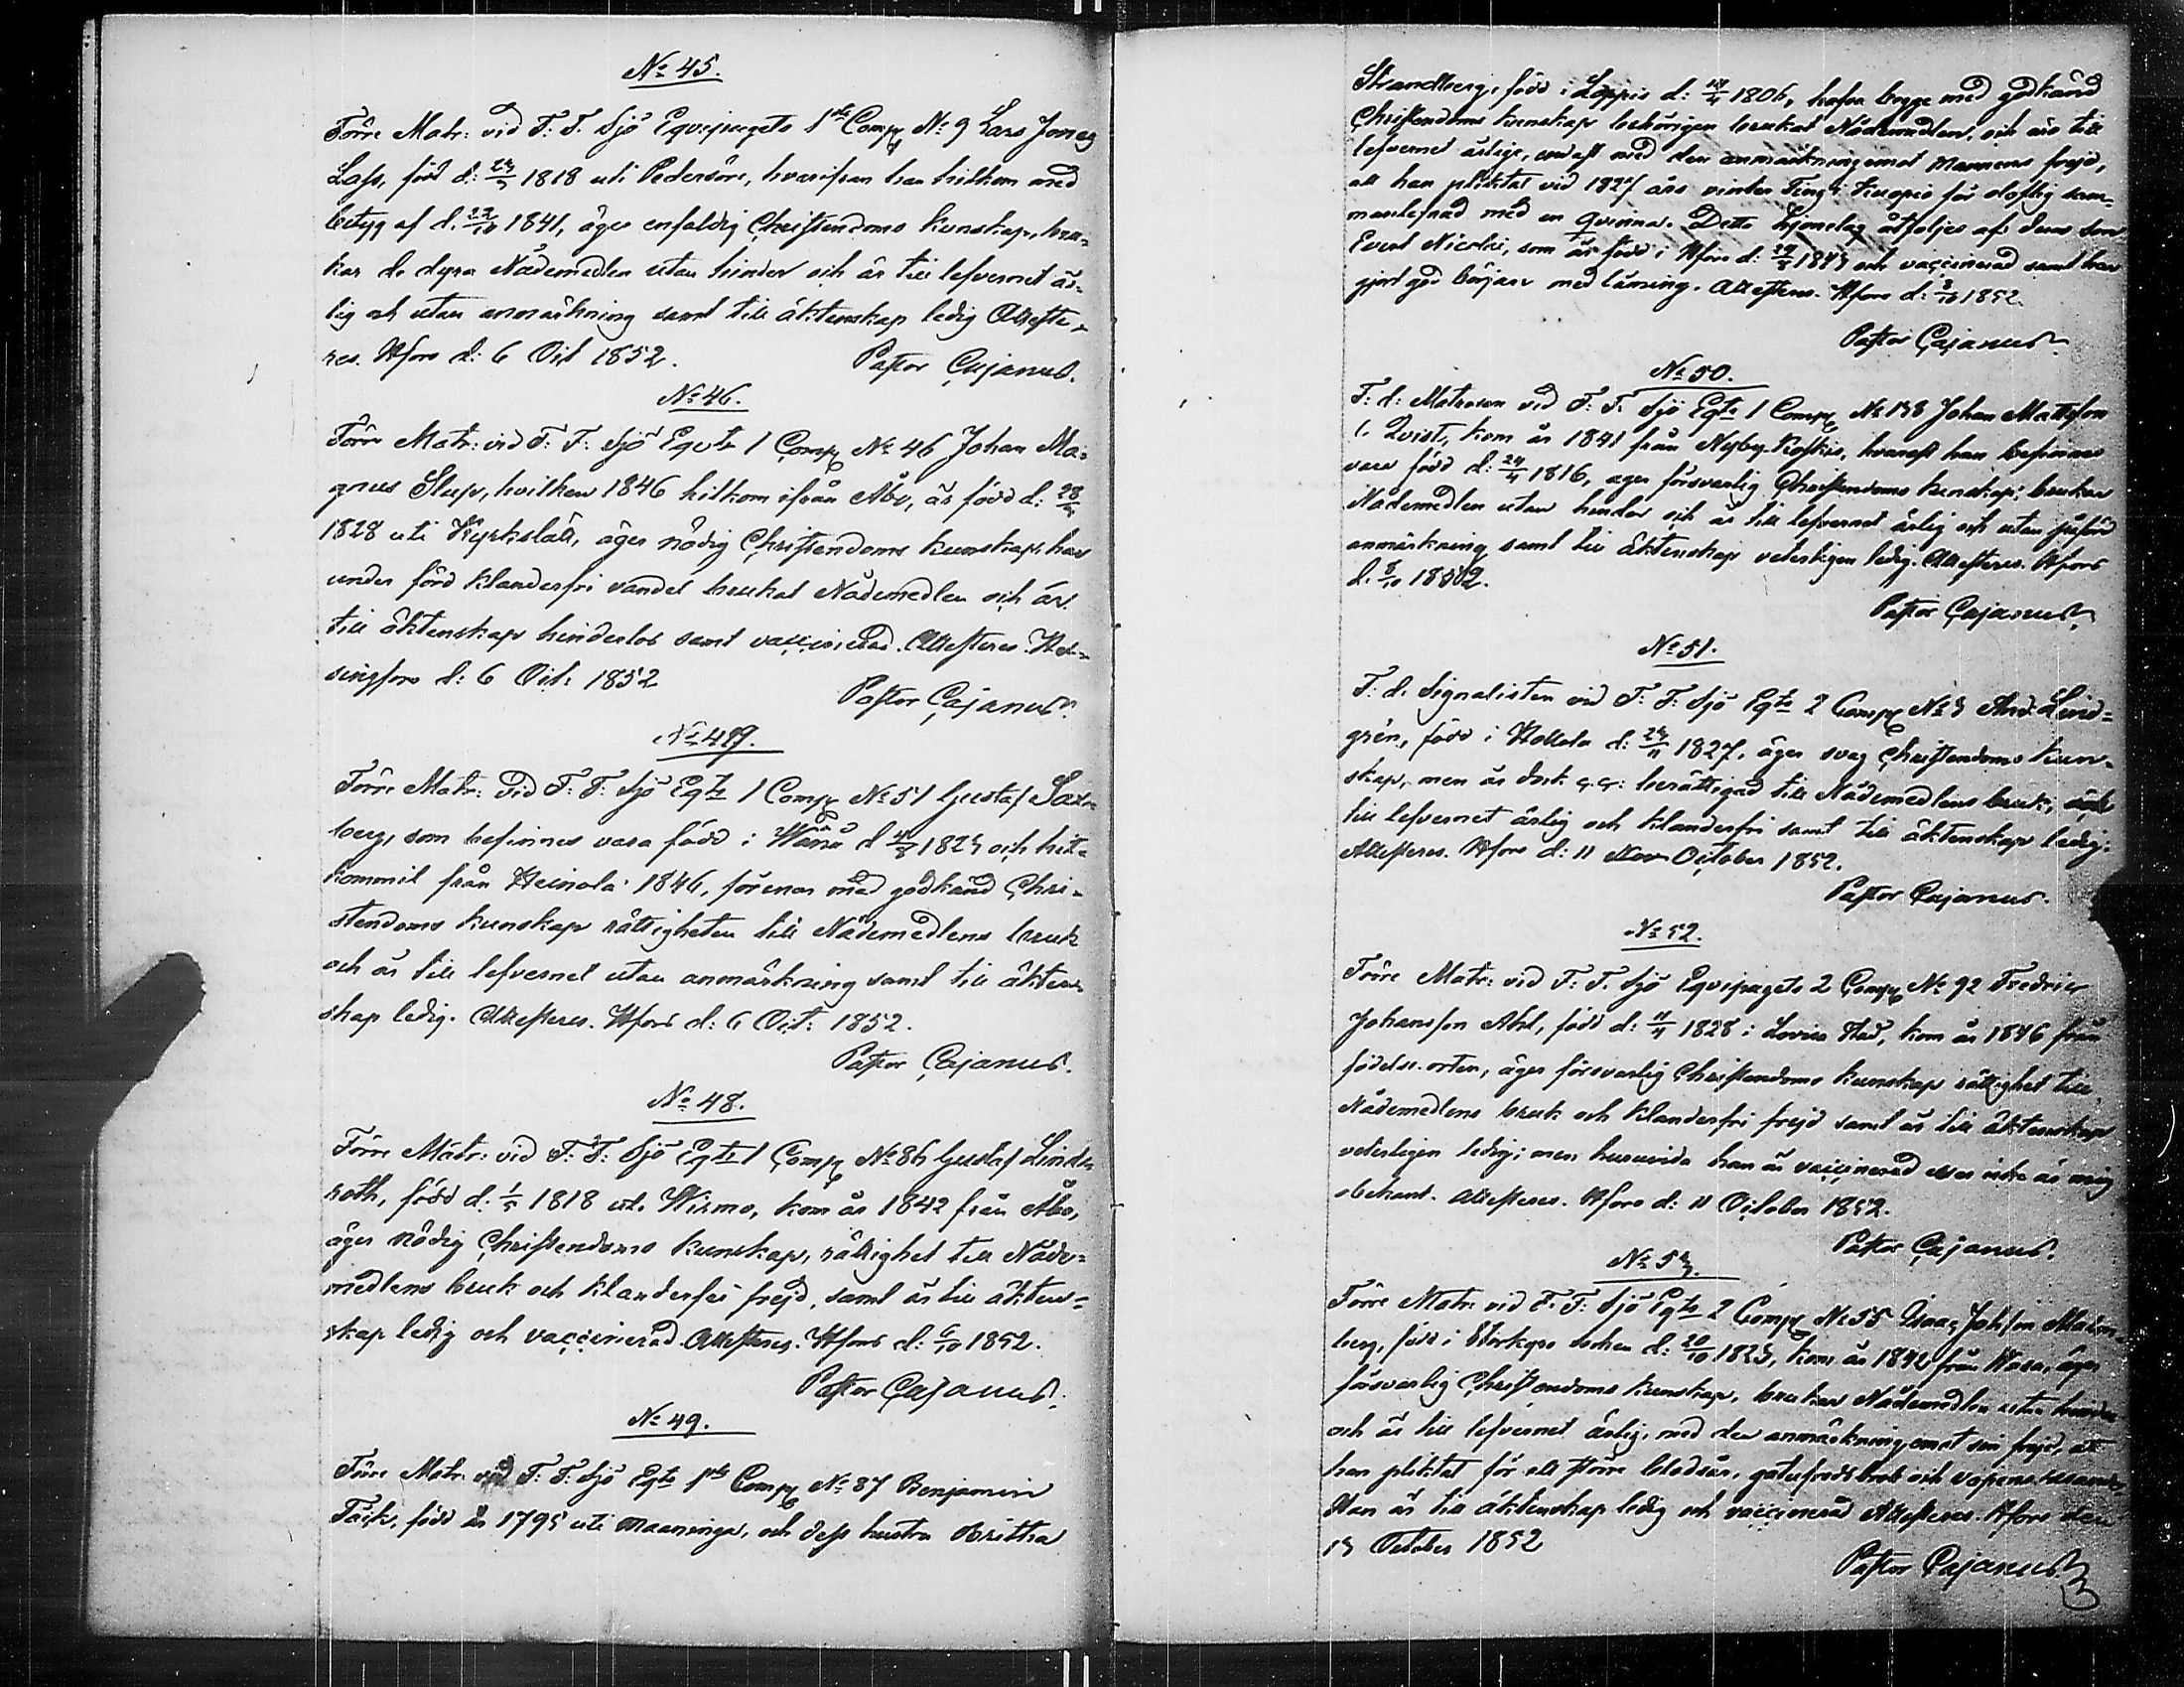 No 45.
Förre Matr: vid F: F. Sjö Equipagets 1ste Comp No 9 Lars Jonas
Lass, född d: 1818 uti Pedersöre, hvarifran han hitkom med
betyg af d. 22/10 1841, äger enfaldig Christendoms kunskap, bru-
kar de dyra Nådemedlen utan hinder och är till lefvernet är-
lig och utan anmärkning samt till äktenskap ledig Atteste-
res. Hfors d: 6 Oct 1852.
Pastor Cajanus.
No 46.
Förre Matr: vid F: F: Sjö Eqvts 1 Comp No 46 Johan Ma-
gnus Slup, hvilken 1846 hitkom ifrån Åbo, är född d:
1828 uti Kyrkslätt, äger nödig Christendoms kunskap, har
under förd klanderfri vandel brukat Nådemedlen och är
till äktenskap hinderlös samt vaccinerad. Attesteres. Hel-
singfors d: 6 Oct: 1852
Pastor Cajanus.
No 47.
Förre Matr: vid F: F: Sjö Eqts 1 Comp No 51 Gustaf
berg, som befinnes vara född i Wånå d och hit-
kommit från Heinola 1846, förenar med godkänd Chri-
stendoms kunskap rättigheten till Nådemedlens bruk
och är till lefvernet utan anmärkning samt till äkten-
skap ledig. Attesteres. Hfors d: 6 Oct: 1852.
Pastor Cajanus.
No 48.
Förre Matr: vid F: F: Sjö Eqts 1 Comp No 86 Gustaf Lind-
roth, född d: 1/5 1818 uti Wirmo, kom år 1842 från Åbo,
äger nödig Christendoms kunskap, rättighet till Nåde-
medlens bruk och klanderfri frejd, samt är till äkten-
skap ledig och vaccinerad. Attesteres. Hfors d: 6/10 1852.
Pastor Cajanus.
No 49.
Förre Matr. vid F: F: Sjö Eqts 1ste Comp No 87 Benjamin
Fäck, född år 1795 uti Maaninga, och dess hustru Britha
Strandberg, född i Loppis d: 1806, hafva begge med godkänd
Christendoms kunskap behörigen brukat Nådemedlen, och äro till
lefvernet ärlige, endast med den anmärkning emot Mannens frejd,
att han pliktat vid 1827 års vinter Ting i Kuopio för oloflig sam-
manlefnad med en qvinna. Detta Hjonelag åtföljes af deras son
Evert Nicolai, som är född i Hfors d: och vaccinerad samt har
gjort god början med läsning. Attesteres. Hfors d: 8/10 1852.
Pastor Cajanus.
No 50.
F: d: Matrosen vid F: F: Sjö Eqts 1 Comp No 138 Johan Mattsson
l. Qvist, kom år 1841 från Nyby Koskis, hvarest han befinnes
vara född d: 24/4 1816, äger försvarlig Christendoms kunskap, brukar
Nådemedlen utan hinder och är till lefvernet ärlig och utan påförd
anmärkning samt till äktenskap veterligen ledig. Attesteres. Hfors
d. 8/10 1852.
Pastor Cajanus.
No 51.
F: d. Signalisten vid F: F: Sjö Eqts 2 Comp No 3 And: Lind-
grén, född i Hollola d: 1827, äger svag Christendoms kun-
skap, men är dock berättigad till Nådemedlens bruk,
till lefvernet ärlig och klanderfri samt till äktenskap ledig.
Attesteres. Hfors d: 11 October 1852.
Pastor Cajanus.
No 52.
Förre Matr: vid F: F. Sjö Equipagets 2 Comp No 92 Fredric
Johansson Ahl, född d: 1828 i Lovisa Stad, kom år 1846 från
födelse orten, äger försvarlig Christendoms kunskap rättighet till
Nådemedlens bruk och klanderfri frejd samt är till äktenskap
veterligen ledig; men huruvida han är vaccinerad eller icke är mig
obekant. Attesteres. Hfors d: 11 October 1852.
Pastor Cajanus.
No 53.
Förre Matr. vid F. F: Sjö Eqts 2 Comp No 55 Isaac Johsson Malm-
berg, född i Storkyro socken d: 20/10 1823, kom år 1842 från Wasa, äger
försvarlig Christendoms kunskap, brukar Nådemedlen utan hinder
och är till lefvernet ärlig, med den anmärkning emot sin frejd, att
han pliktat för ett större blodsår, gatufredsbrott och
Han är till äktenskap ledig och vaccinerad Attesteres. Hfors den
13 October 1852
Pastor Cajanus